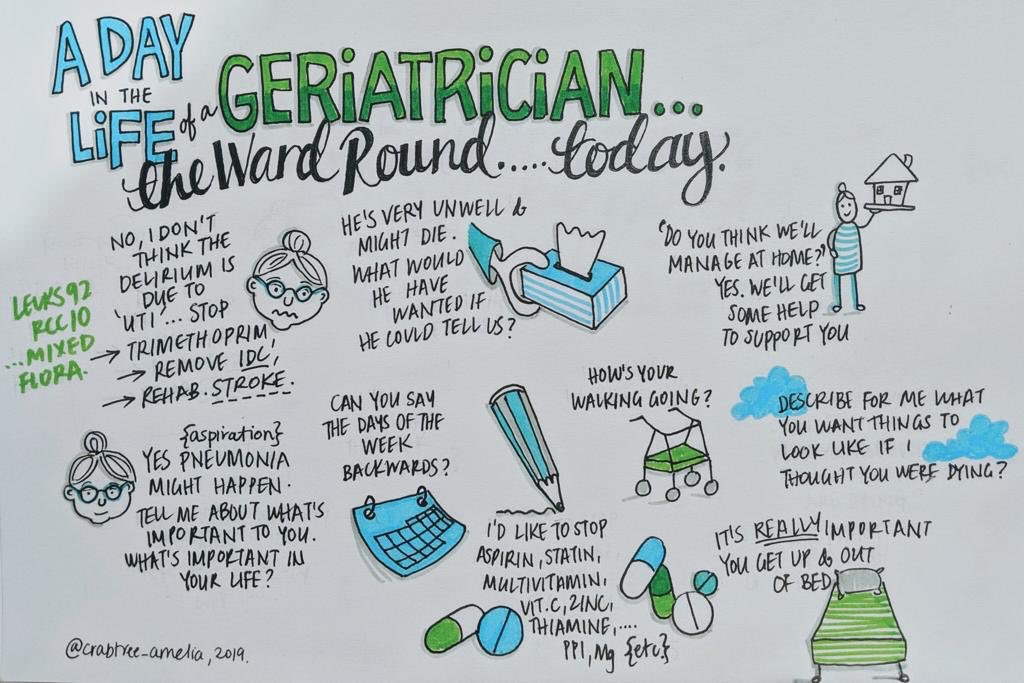 A DAY
IN THE
LiFE of a GERiATRiCiAN...
the Ward Round..... today.
NO, I DON'T
THINK THE
DELIRIUM IS
DUE TO
'UTI'... STOP
→ TRIMETHOPRIM,
→ REMOVE IDC,
→ REHAB. STROKE.
LEUKS 92
RCC 10
...MIXED
FLORA.
HE'S VERY UNWELL &
MIGHT DIE.
WHAT WOULD
HE HAVE
WANTED IF
HE COULD TELL US?
"DO YOU THINK WE'LL
MANAGE AT HOME?"
YES. WE'LL GET
SOME HELP
TO SUPPORT YOU
{aspiration}
YES PNEUMONIA
MIGHT HAPPEN.
TELL ME ABOUT WHAT'S
IMPORTANT TO YOU.
WHAT'S IMPORTANT IN
YOUR LIFE?
CAN YOU SAY
THE DAYS OF THE
WEEK
BACKWARDS?
HOW'S YOUR
WALKING GOING?
DESCRIBE FOR ME WHAT
YOU WANT THINGS TO
LOOK LIKE IF I
THOUGHT YOU WERE DYING?
I'D LIKE TO STOP
ASPIRIN, STATIN,
MULTIVITAMIN,
VIT.C, ZINC,
THIAMINE,....
PPI, Mg {etc}
IT'S REALLY IMPORTANT
YOU GET UP & OUT
OF BED
@crabtree_amelia, 2019.